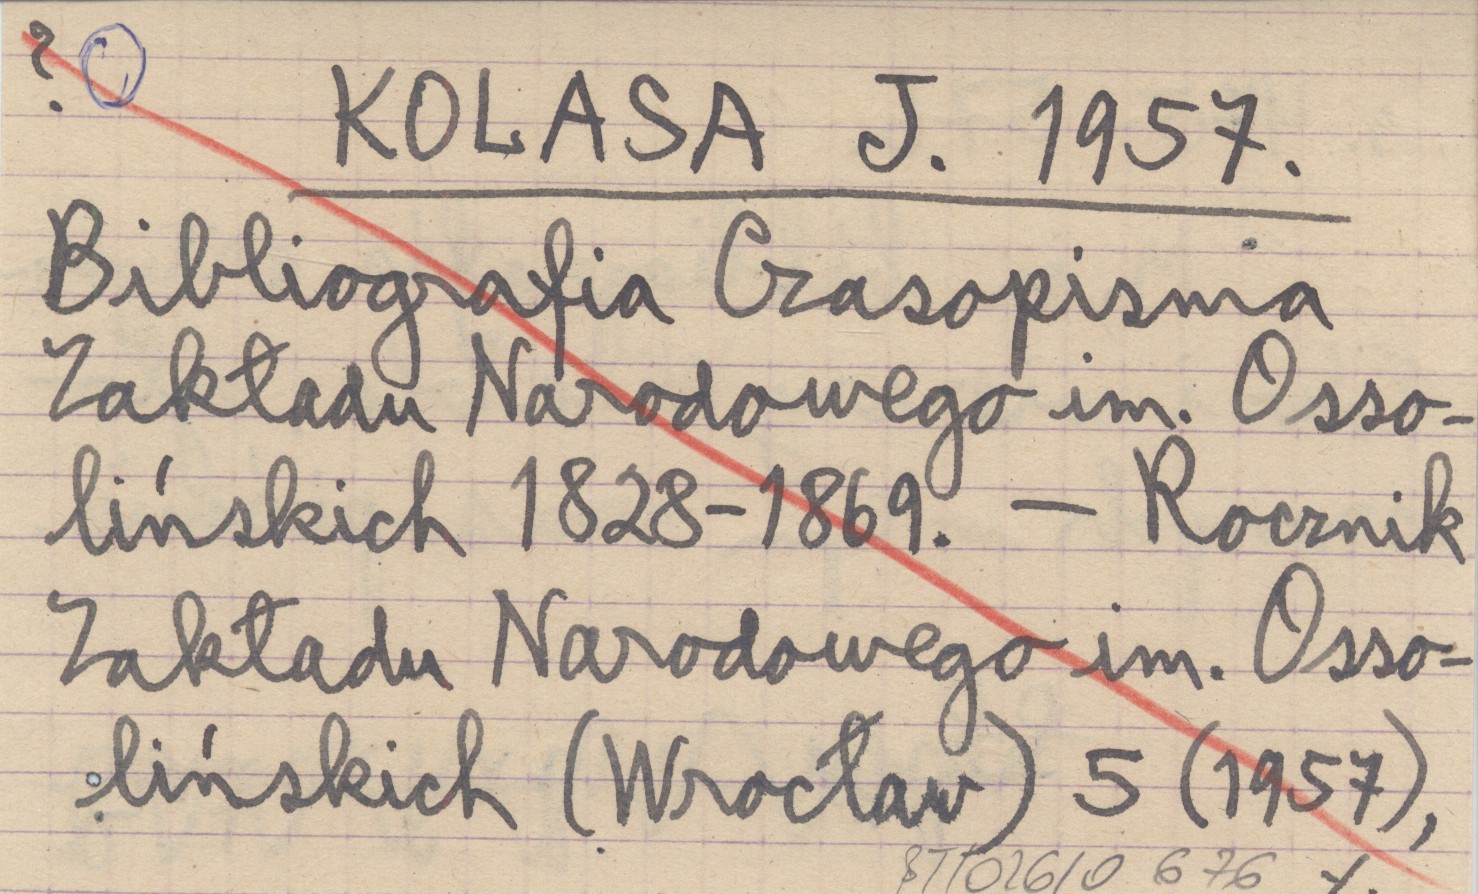 ?
KOLASA J. 1957.
Bibliografia Czasopisma
Zakładu Narodowego im. Osso-
lińskich 1828-1869. — Rocznik
Zakładu Narodowego im. Osso-
lińskich (Wrocław) 5 (1957),
676 ./.